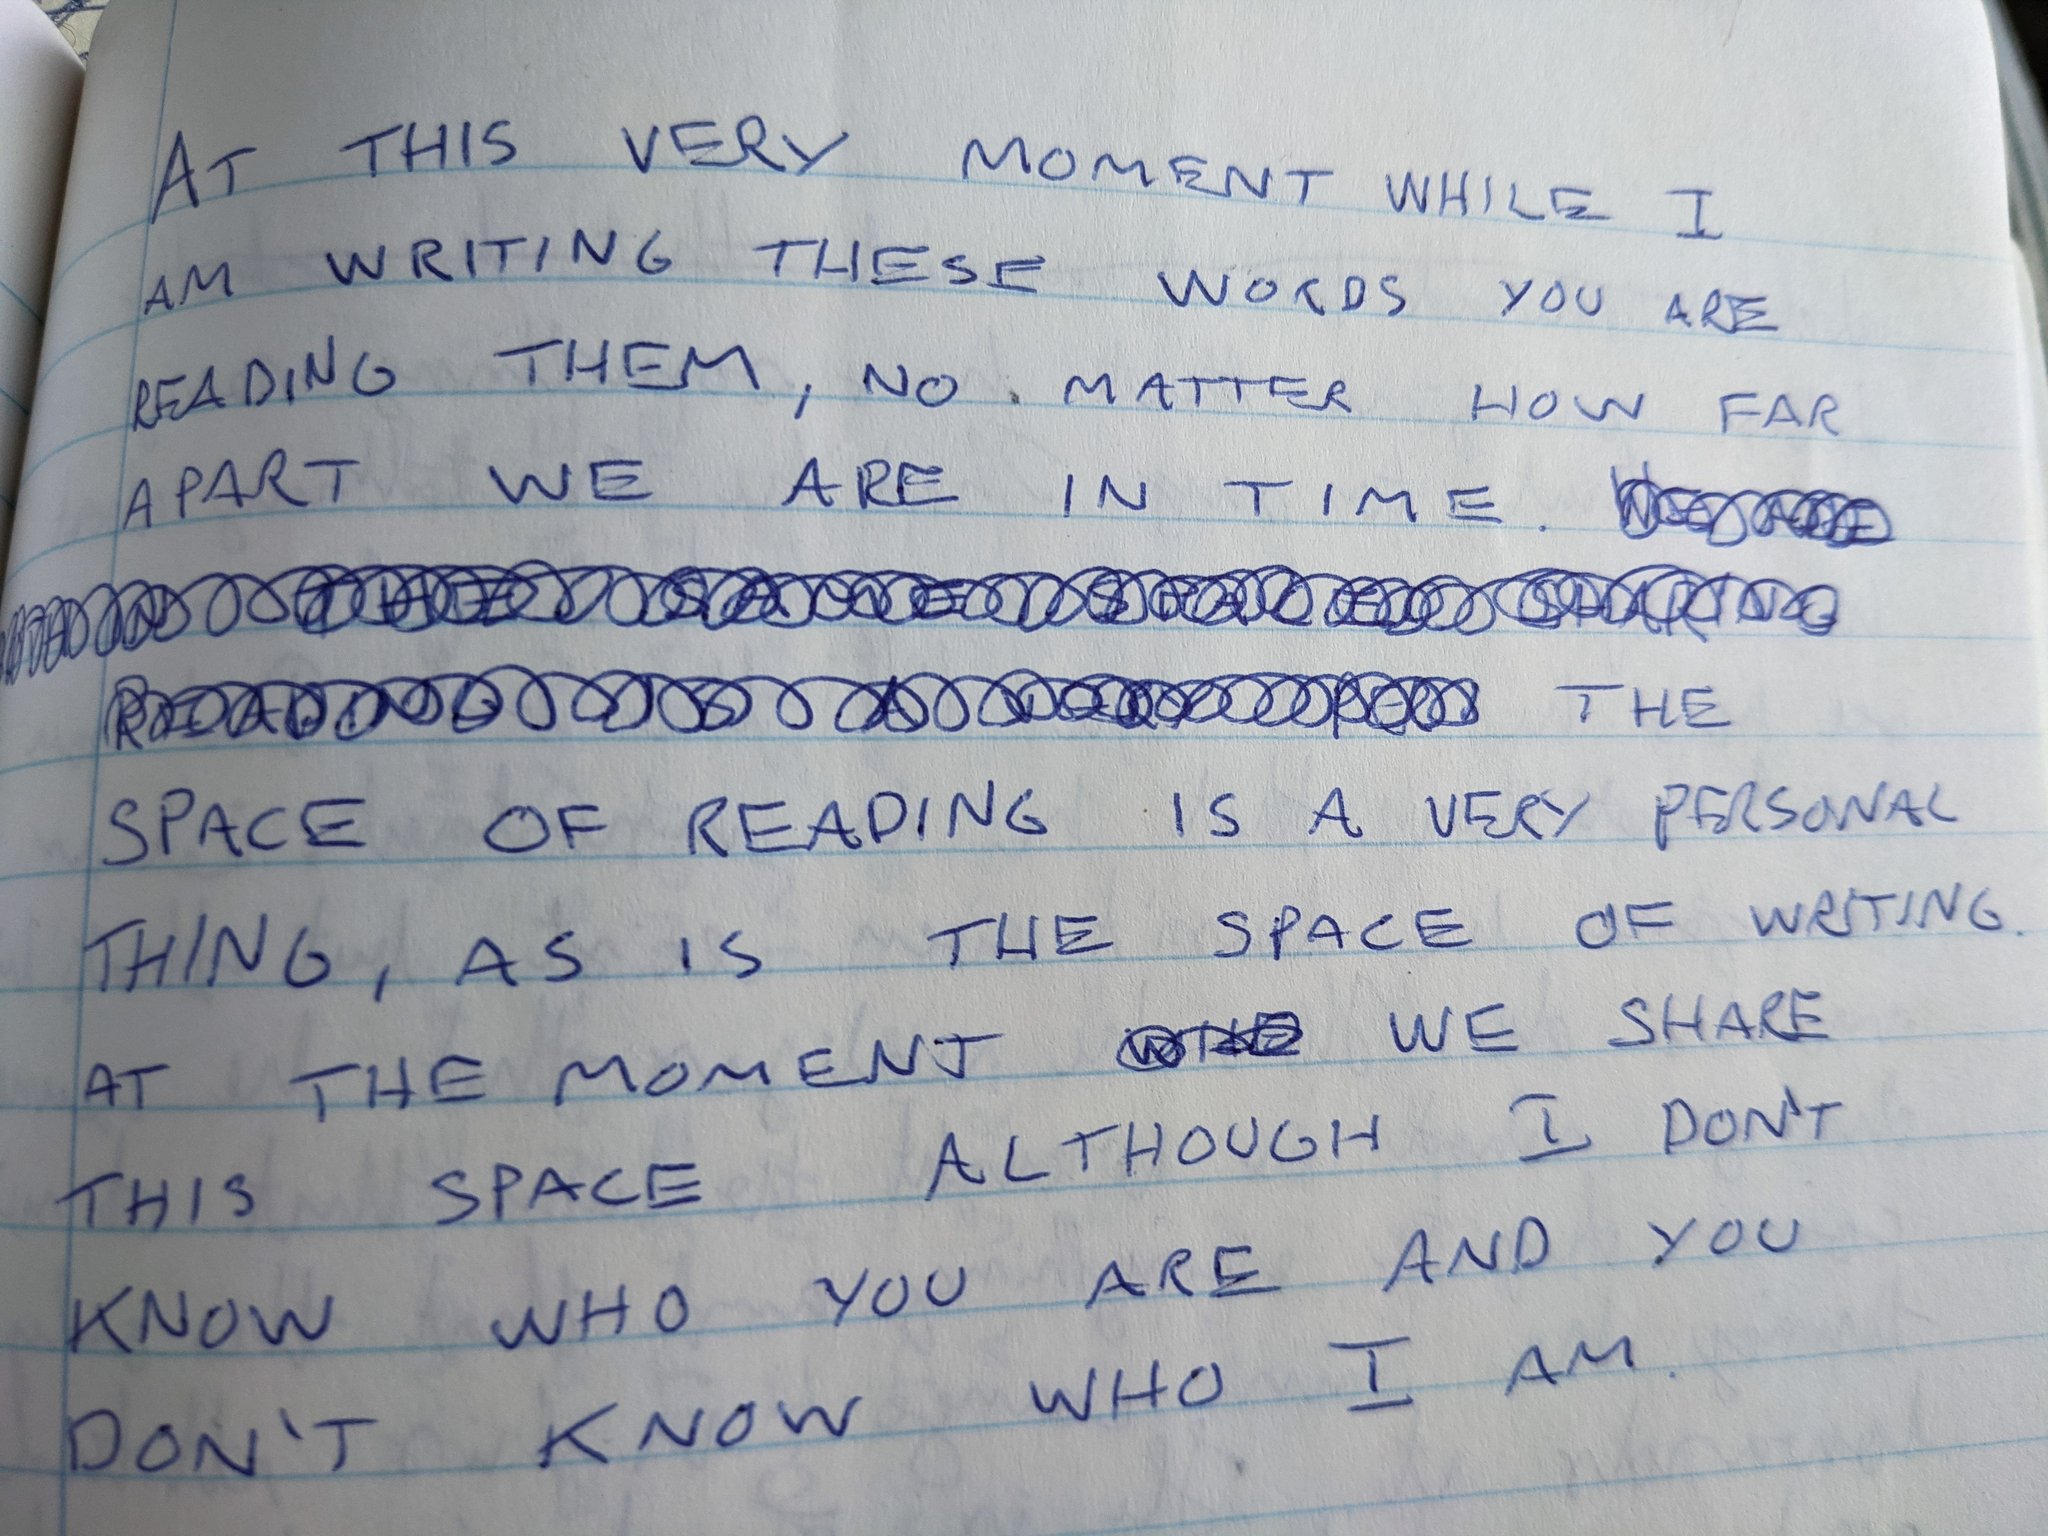 AT THIS VERY MOMENT WHILE I
AM WRITING THESE WORDS YOU ARE
READING THEM, NO MATTER HOW FAR
APART WE ARE IN TIME.
THE
SPACE OF READING IS A VERY PERSONAL
THING, AS IS THE SPACE OF WRITING.
AT THE MOMENT WE SHARE
THIS SPACE ALTHOUGH I DON'T
KNOW WHO YOU ARE AND YOU
DON'T KNOW WHO I AM.